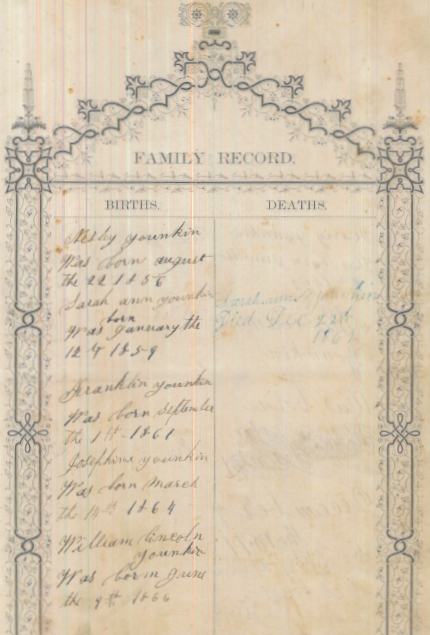 FAMILY RECORD.
BIRTHS.
Nesby younkin
Was born august
the 22 1856
Sarah ann younkin
born
Was January the
12 th 1859
Franklin younkin
Was born September
the 1st 1861
Josephine younkin
Was born March
the 14th 1864
William Lincoln
younkin
Was born June
the 9th 1866
DEATHS.
Sarah ann younkin
Died Dec 22d
186